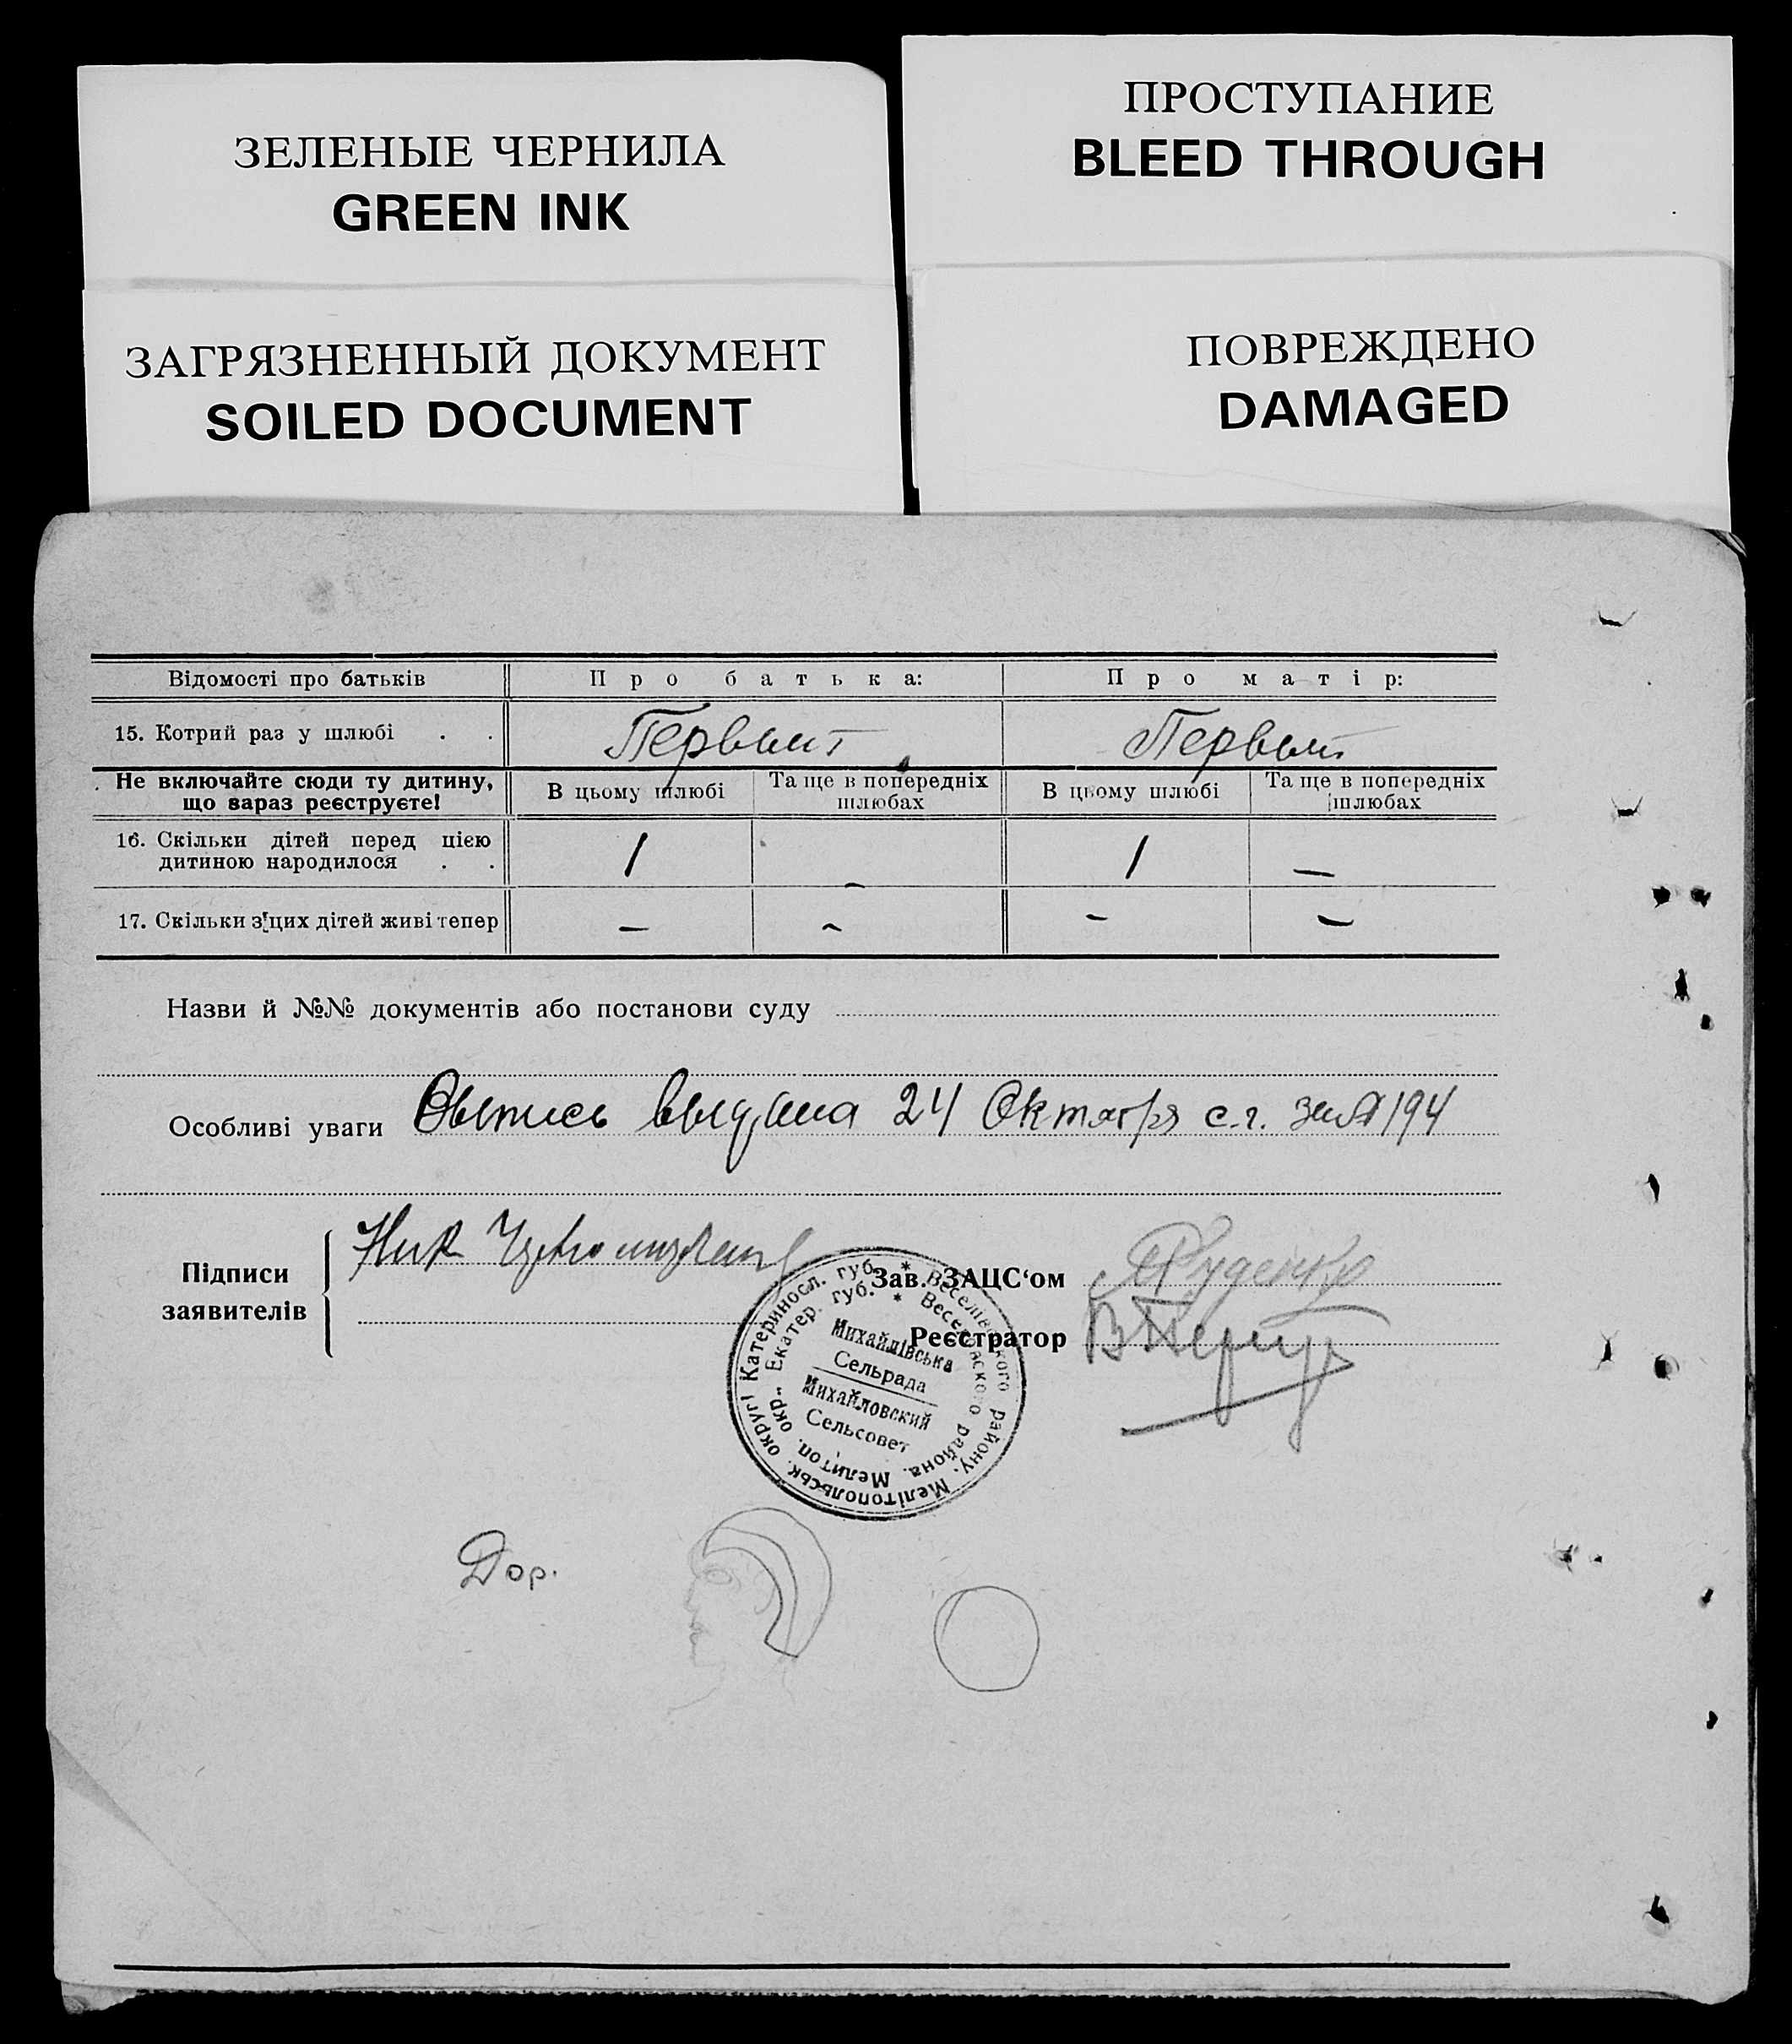 ЗЕЛЕНЫЕ ЧЕРНИЛА
GREEN INK
ЗАГРЯЗНЕННЫЙ ДОКУМЕНТ
SOILED DOCUMENT
ПРОСТУПАНИЕ
BLEED THROUGH
ПОВРЕЖДЕНО
DAMAGED
Відомості про батьків Про батька: Про матір:
15. Котрий раз у шлюбі . . Первый Первый
Не включайте сюди ту дитину, що зараз реєструєте! В цьому шлюбі Та ще в попередніх шлюбах В цьому шлюбі Та ще в попередніх шлюбах
16. Скільки дітей перед цією дитиною народилося . . 1 – 1 —
17. Скільки з цих дітей живі тепер — - - —
Назви й №№ документів або постанови суду
Особливі уваги Выпись выдана 24 Октября с.г. за № 194
Підписи заявителів
Ник
Зав. ЗАЦС‘ом Руденко
Реєстратор
Катериносл. губ. * Веселівського району, Мелітопольськ. округі
Екатер. губ. * Веселовского района. Мелитоп. окр.
Михайлівська
Сельрада
Михайловский
Сельсовет
Дор.